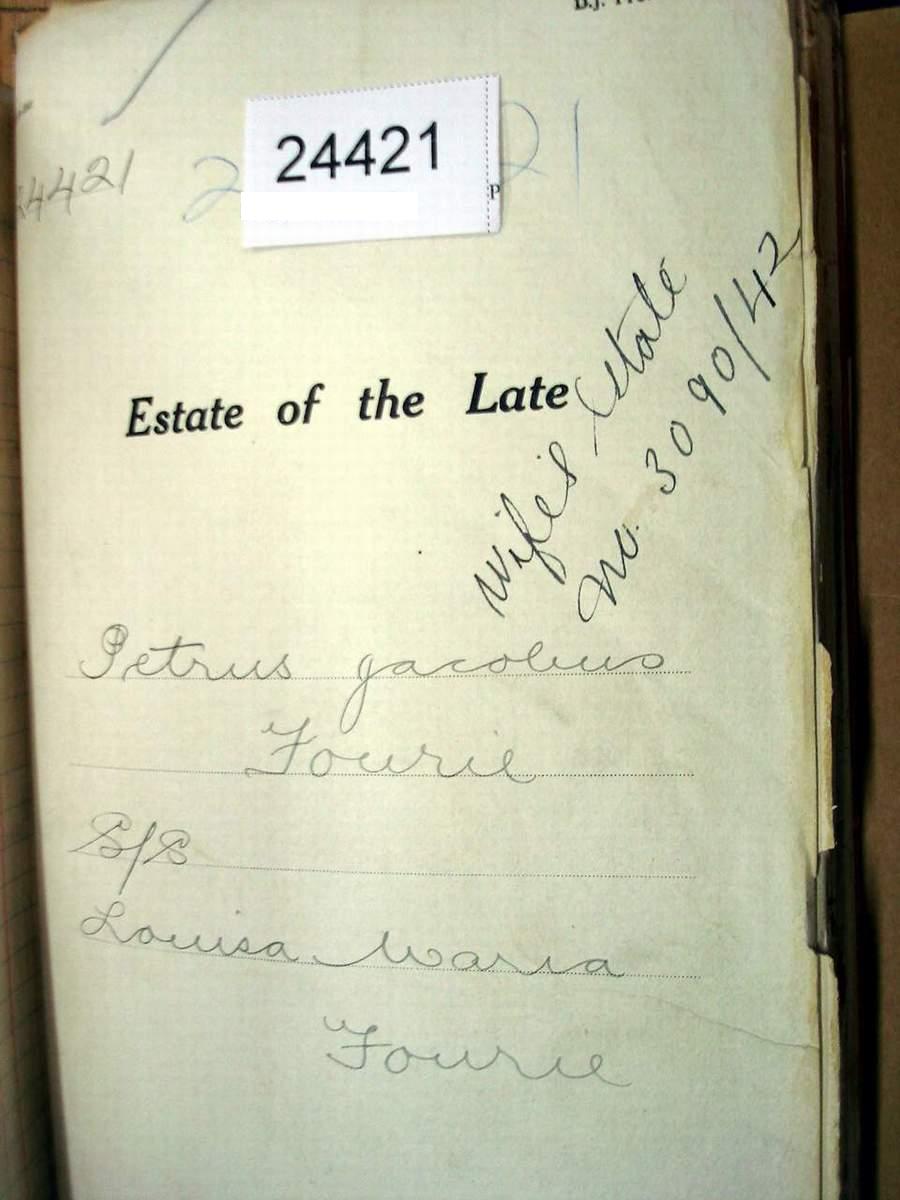 24421
4421
2 21
P
Estate of the Late
Wife's Estate
No. 3090/42
Petrus Jacobus
Fourie
S/S
Louisa Maria
Fourie